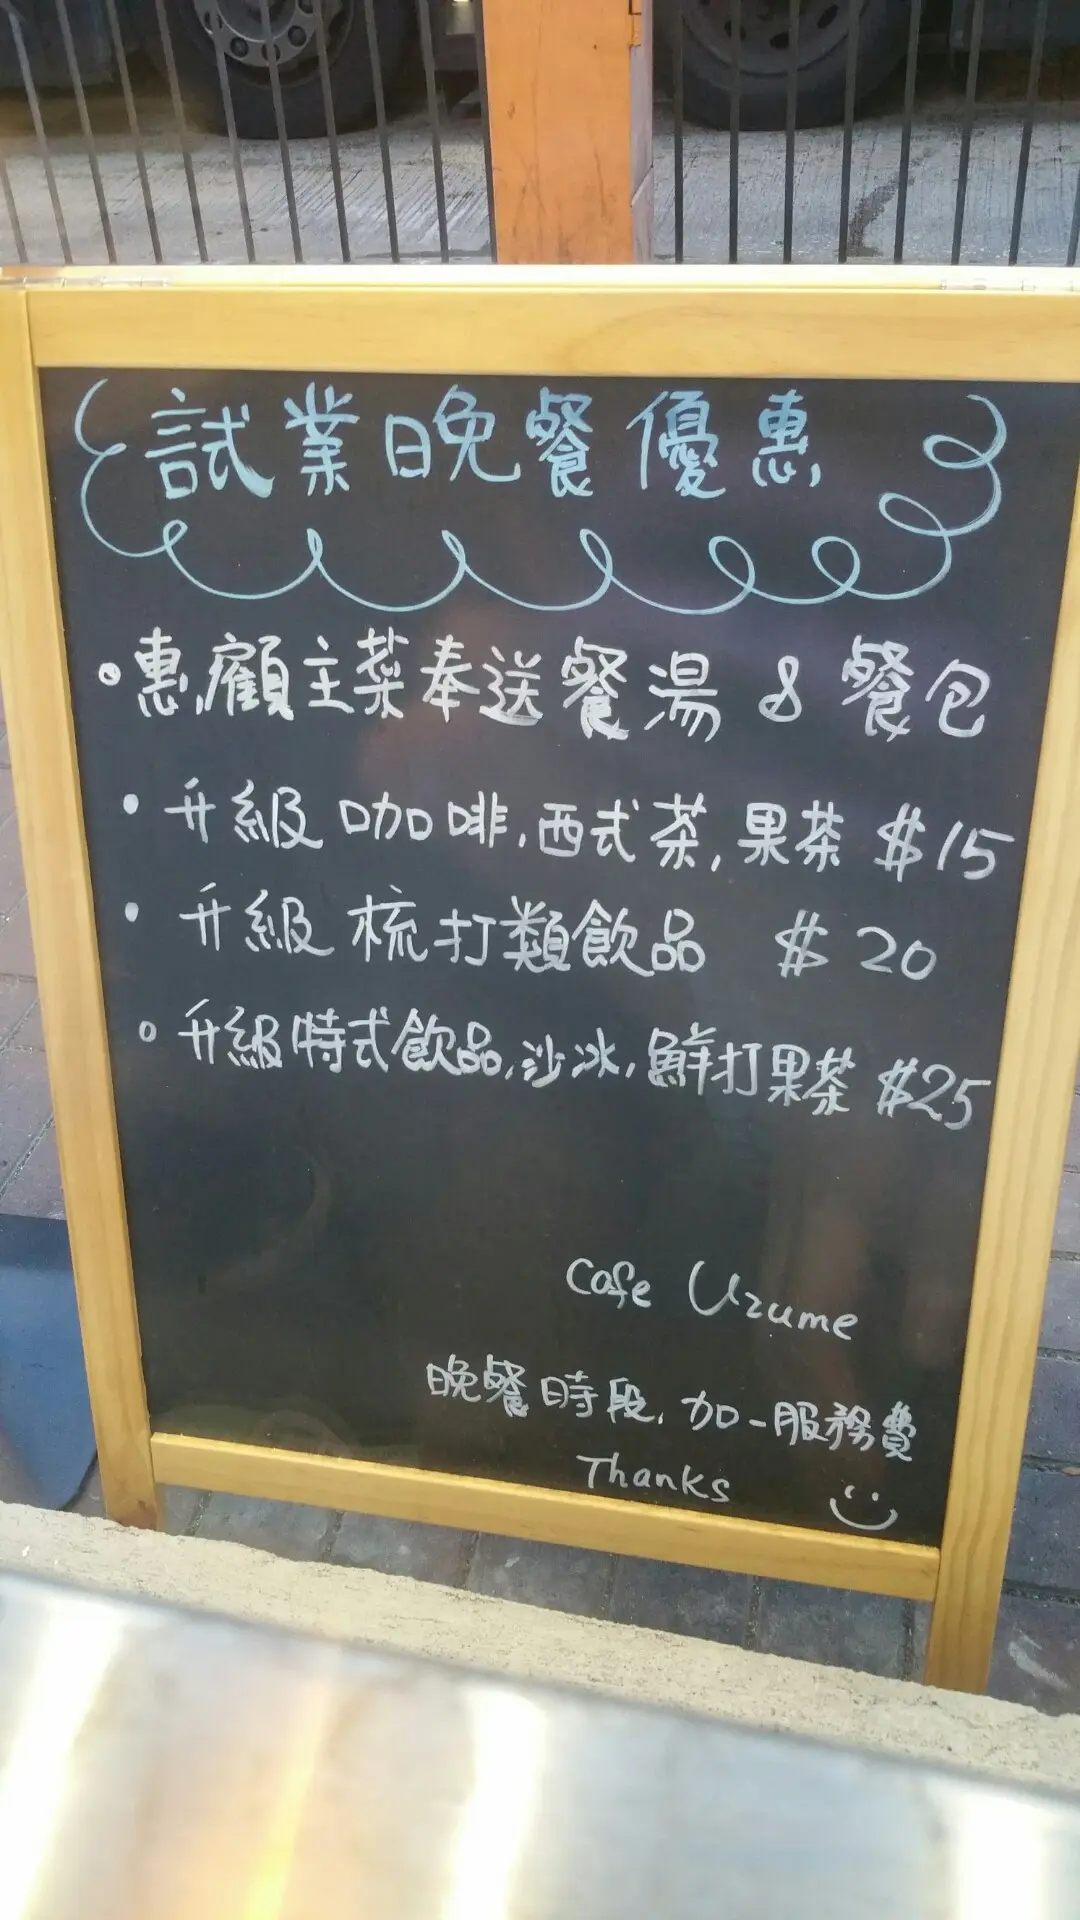 試業晚餐優惠
•惠顧主菜奉送餐湯 & 餐包
• 升級 咖啡,西式茶,果茶 $15
• 升級 梳打類飲品 $ 20
• 升級特式飲品,沙冰,鮮打果茶 $25
Cafe Uzume
晚餐時段,加一服務費
Thanks